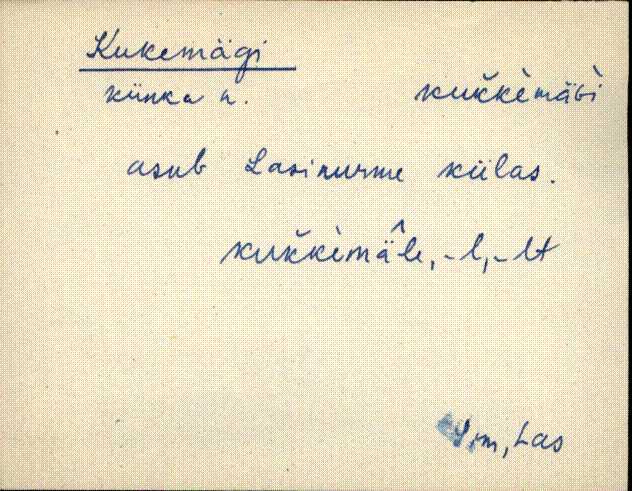 Kukemägi
künka n. kuk̆kèmäɢì
asub Lasinurme külas.
kuk̆kèmä̂le, -l, -lt
Sim, Las